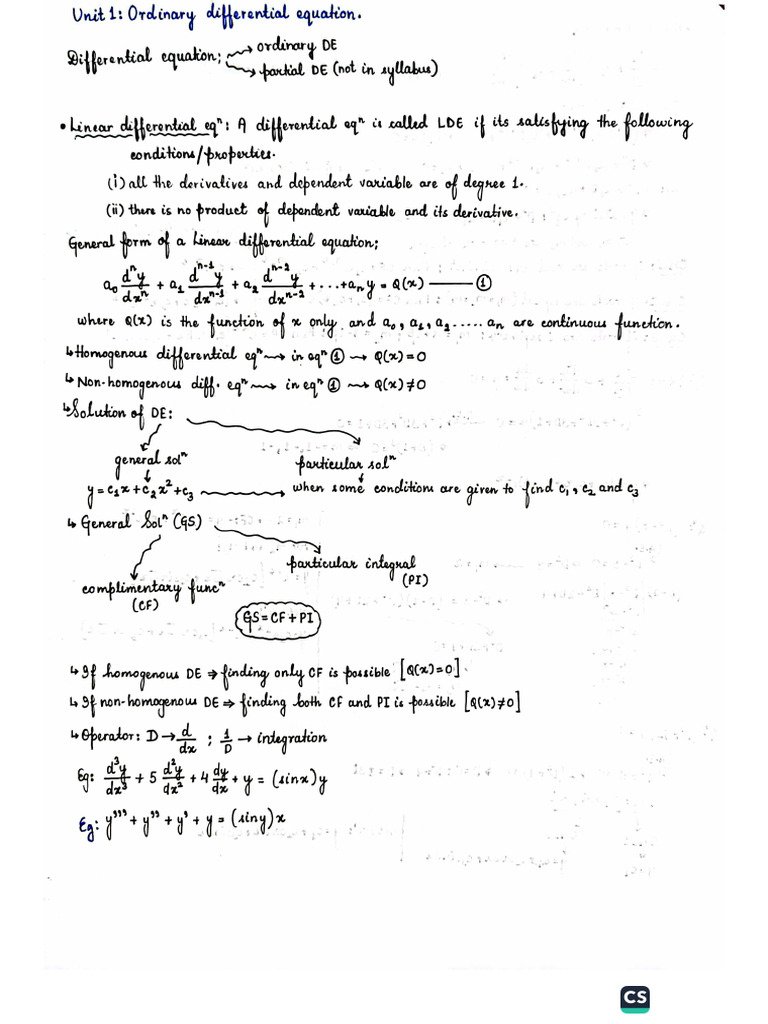 Unit 1: Ordinary differential equation.
Differential equation; → ordinary DE
→ partial DE (not in syllabus)
• Linear differential eqⁿ: A differential eqⁿ is called LDE if its satisfying the following
conditions/properties.
(i) all the derivatives and dependent variable are of degree 1.
(ii) there is no product of dependent variable and its derivative.
General form of a Linear differential equation;
a₀ dⁿy/dxⁿ + a₁ dⁿ⁻¹y/dxⁿ⁻¹ + a₂ dⁿ⁻²y/dxⁿ⁻² + ... + aₙy = Q(x) —— ①
where Q(x) is the function of x only and a₀, a₁, a₂ ..... aₙ are continuous function.
↳ Homogenous differential eqⁿ → in eqⁿ ① → Q(x) = 0
↳ Non-homogenous diff. eqⁿ → in eqⁿ ① → Q(x) ≠ 0
↳ Solution of DE:
general solⁿ
particular solⁿ
y = c₁x + c₂x² + c₃ → when some conditions are given to find c₁, c₂ and c₃
↳ General Solⁿ (GS)
particular integral
(PI)
complimentary funcⁿ
(CF)
GS = CF + PI
↳ If homogenous DE ⇒ finding only CF is possible [Q(x) = 0]
↳ If non-homogenous DE ⇒ finding both CF and PI is possible [Q(x) ≠ 0]
↳ Operator: D → d/dx ; 1/D → integration
Eg: d³y/dx³ + 5 d²y/dx² + 4 dy/dx + y = (sinx)y
Eg: y''' + y'' + y' + y = (siny)x
CS